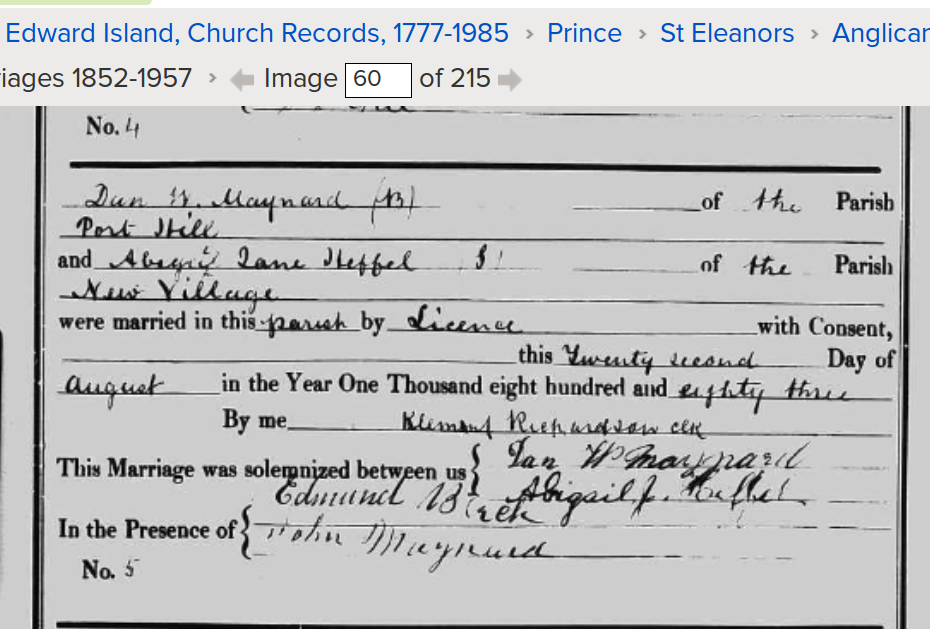 Edward Island, Church Records, 1777-1985 › Prince › St Eleanors › Anglican
iages 1852-1957 › Image 60 of 215
No. 4
Dan W. Maynard (B) of the Parish
Port Hill
and Abigail Jane Heffel S of the Parish
New Village
were married in this parish by Licence with Consent,
this Twenty second Day of
August in the Year One Thousand eight hundred and eighty three
By me Richardson clk
This Marriage was solemnized between us { Dan W Maynard
Abigail J. Heffel
In the Presence of { Edmund Birch
John Maynard
No. 5